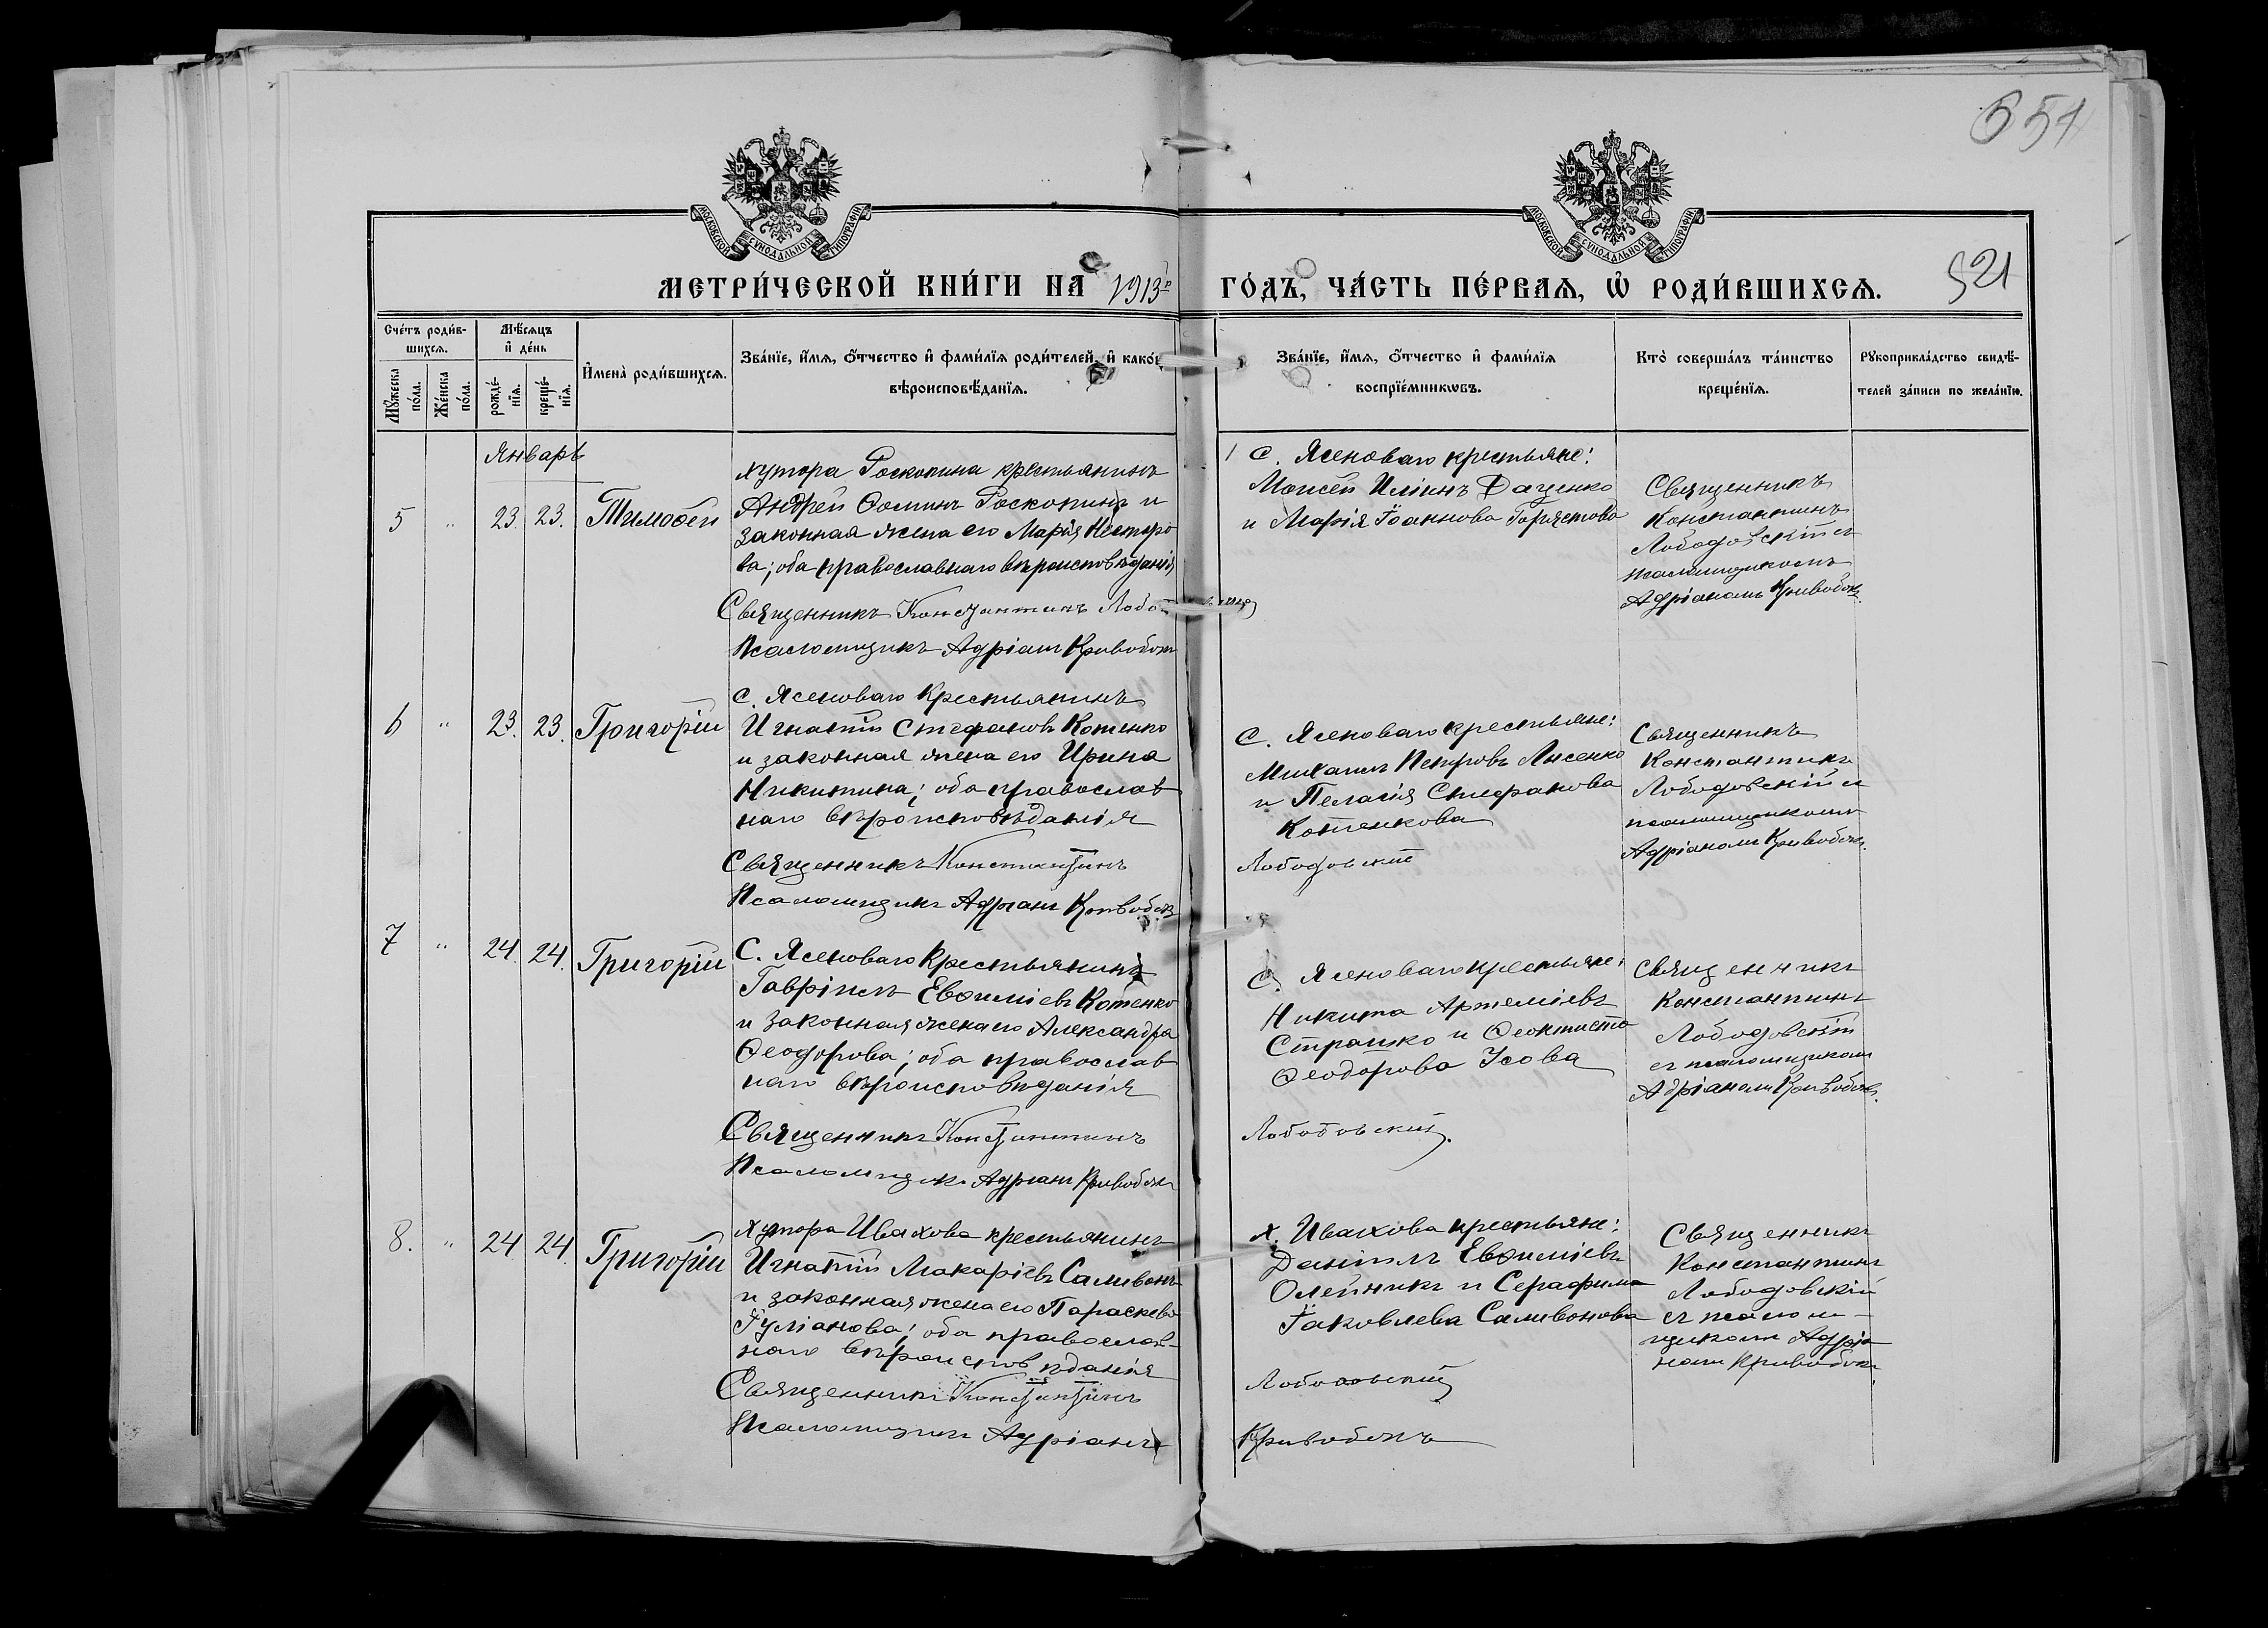 651
МОСКОВСКОЙ СѴНОДАЛЬНОЙ ТИПОГРАФІИ
МОСКОВСКОЙ СѴНОДАЛЬНОЙ ТИПОГРАФІИ
МЕТРИ́ЧЕСКОЙ КНИ́ГИ НА 1913 ГО́ДЪ, ЧА́СТЬ ПЕ́РВАЯ, Ѡ҆ РОДИ́ВШИХСЯ.
521
Сче́тъ роди́в-
шихся.
Мѣ́сяцъ
и҆ де́нь
Мꙋ́жеска
по́ла.
Же́нска
по́ла.
рожде́-
нїя.
креще́-
нїя.
И҆мена̀ роди́вшихся.
Зва́нїе, и҆́мя, ѻ҆́тчество и҆ фами́лїя роди́телей, и҆ како́г
вѣроисповѣ́данїя.
Зва́нїе, и҆́мя, ѻ҆́тчество и҆ фами́лїя
воспрїе́мникѡвъ.
Кто̀ соверша́лъ та́инство
креще́нїя.
Рꙋкоприкла́дство свидѣ́-
телей за́писи по жела́нїю.
Январь
5 " 23. 23. Тимоѳей
хутора Роскопина крестьянинъ
Андрей Ѳоминъ Роскопинъ и
законная жена его Марія Несторо
ва; оба православнаго вѣроисповѣданія
Священникъ Константинъ Лободовскій
Псаломщикъ Адріанъ Кривобокъ
с. Ясеноваго крестьяне:
Моисей Иліинъ Даценко
и Марія Іоаннова
Священникъ
Константинъ
Лободовскій съ
псаломщикомъ
Адріаномъ Кривобок.
6 " 23. 23. Григорій
с. Ясеноваго Крестьянинъ
Игнатій Стефановъ Котенко
и законная жена его Ирина
Никитина; оба православ
наго вѣроисповѣданія
Священникъ Константинъ
Псаломщикъ Адріанъ Кривобокъ
с. Ясеноваго крестьяне:
Михаилъ Петровъ Лысенко
и Пелагія Стефанова
Котенкова
Лободовскій
Священникъ
Константинъ
Лободовскій съ
псаломщикомъ
Адріаномъ Кривобок.
7 " 24. 24. Григорій
С. Ясеноваго Крестьянинъ
Гавріилъ Евѳиміевъ Котенко
и законная жена его Александра
Ѳеодорова; оба православ
наго вѣроисповѣданія
Священникъ Константинъ
Псаломщик. Адріанъ Кривобокъ
с. Ясеноваго крестьяне:
Никита Артеміевъ
Страшко и Ѳеоктиста
Ѳеодорова Усова
Лободовскій.
Священникъ
Константинъ
Лободовскій
съ псаломщикомъ
Адріаномъ Кривобок.
8. " 24 24. Григорій
Хутора Ивахова крестьянинъ
Игнатій Макаріевъ Саливонъ
и законная жена его Параскева
Іуліанова; оба православ-
наго вѣроисповѣданія
Священникъ Константинъ
Псаломщикъ Адріанъ
х. Ивахова крестьяне:
Даніилъ Евѳиміевъ
Олейникъ и Серафима
Іаковлева Саливонова
Лободовскій
Кривобокъ
Священникъ
Константинъ
Лободовскій
съ псалом-
щикомъ Адріа
номъ Кривобок.